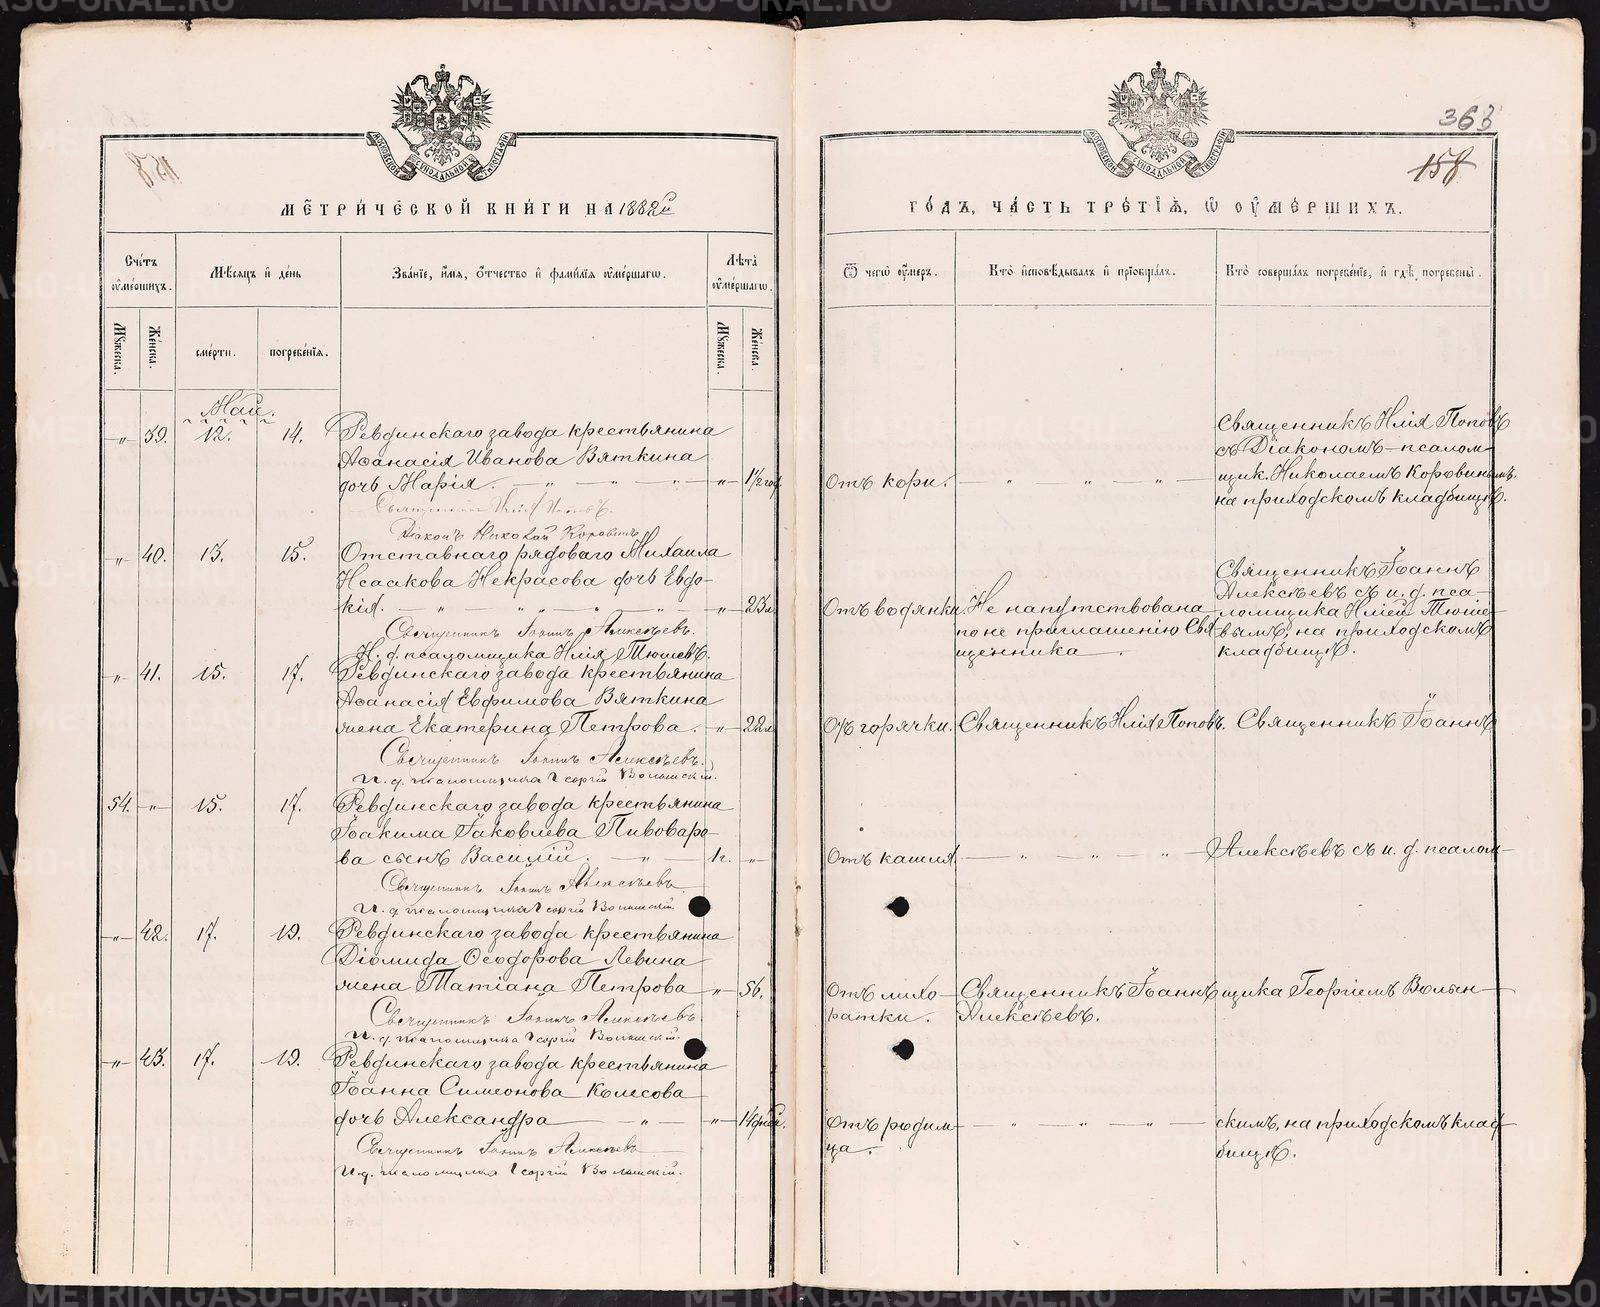 363
158
МЕТРИЧЕСКОЙ КНИГИ НА 1882й
ГОДЪ, ЧАСТЬ ТРЕТІѦ, Ѿ ОУМЕРШИХЪ.
Счетъ оумершихъ.
Мѣсяцъ и день
Званіе, имя, отчество и фамилія оумершагѡ.
Лѣта оумершагѡ.
Мужеска.
Женска.
смерти.
погребенія.
Мужеска.
Женска.
Ѿ чегѡ оумеръ.
Кто исповѣдывалъ и пріобщалъ.
Кто совершалъ погребеніе, и гдѣ погребены.
Май.
-„- 39. 12. 14. Ревдинскаго завода крестьянина
Аѳанасія Иванова Вяткина
дочь Марія. -„- 1½ год
Священникъ Илія Поповъ.
Діаконъ Николай Коровинъ
Отъ кори.
Священникъ Илія Поповъ
съ Діакономъ-псалом-
щик. Николаемъ Коровинымъ,
на приходскомъ кладбищѣ.
-„- 40. 13. 15. Отставнаго рядоваго Михаила
Исаакова Некрасова дочь Евдо-
кія. -„- 23л
Священникъ Іоаннъ Алексѣевъ.
И. д. псаломщика Илія Тюшевъ.
Отъ водянки.
Не напутствована
по не приглашенію Свя-
щенника.
Священникъ Іоаннъ
Алексѣевъ съ и. д. пса-
ломщика Иліей Тюше-
вымъ, на приходскомъ
кладбищѣ.
-„- 41. 15. 17. Ревдинскаго завода крестьянина
Аѳанасія Евфимова Вяткина
жена Екатерина Петрова. -„- 22л
Священникъ Іоаннъ Алексѣевъ.
И. д. псаломщика Георгій Волынскій.
Отъ горячки.
Священникъ Илія Поповъ.
Священникъ Іоаннъ
54. -„- 15. 17. Ревдинскаго завода крестьянина
Іоакима Іаковлева Пивоваро-
ва сынъ Василій. 1г. -„-
Священникъ Іоаннъ Алексѣевъ
И. д. псаломщика Георгій Волынскій.
Отъ кашля.
Алексѣевъ съ и. д. псалом-
-„- 42. 17. 19. Ревдинскаго завода крестьянина
Діомида Ѳеодорова Левина
жена Татіана Петрова -„- 56.
Священникъ Іоаннъ Алексѣевъ.
И. д. псаломщика Георгій Волынскій.
Отъ лихо-
радки.
Священникъ Іоаннъ
Алексѣевъ.
щика Георгіемъ Волын-
-„- 43. 17. 19. Ревдинскаго завода крестьянина
Іоанна Симеонова Колесова
дочь Александра -„- 14 дней.
Священникъ Іоаннъ Алексѣевъ
И. д. псаломщика Георгій Волынскій.
Отъ родим-
ца.
скимъ, на приходскомъ клад-
бищѣ.
METRIKI.GASO-URAL.RU